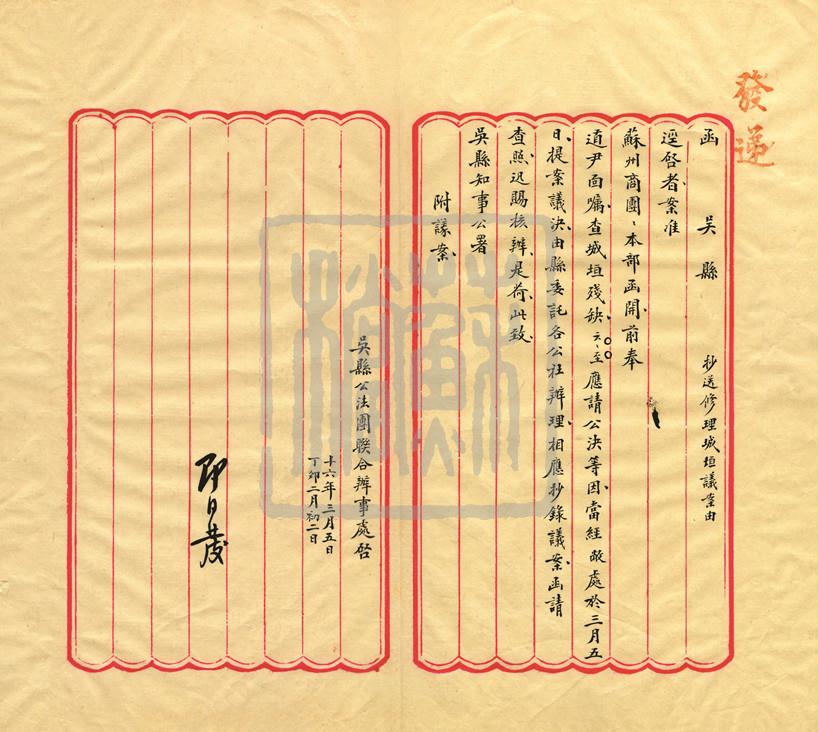 發遞
函 吳縣 抄送修理城垣議案由
逕啓者案准
蘇州商團、本部函開前奉
道尹面囑查城垣殘缺云、至應請公決等因當經敝處於三月五
日提案議決由縣委託各公社辦理相應抄錄議案函請
查照迅賜核辦是荷此致
吳縣知事公署
附議案
吳縣公法團聯合辦事處啓
十六年三月五日
丁卯二月初二日
即日發